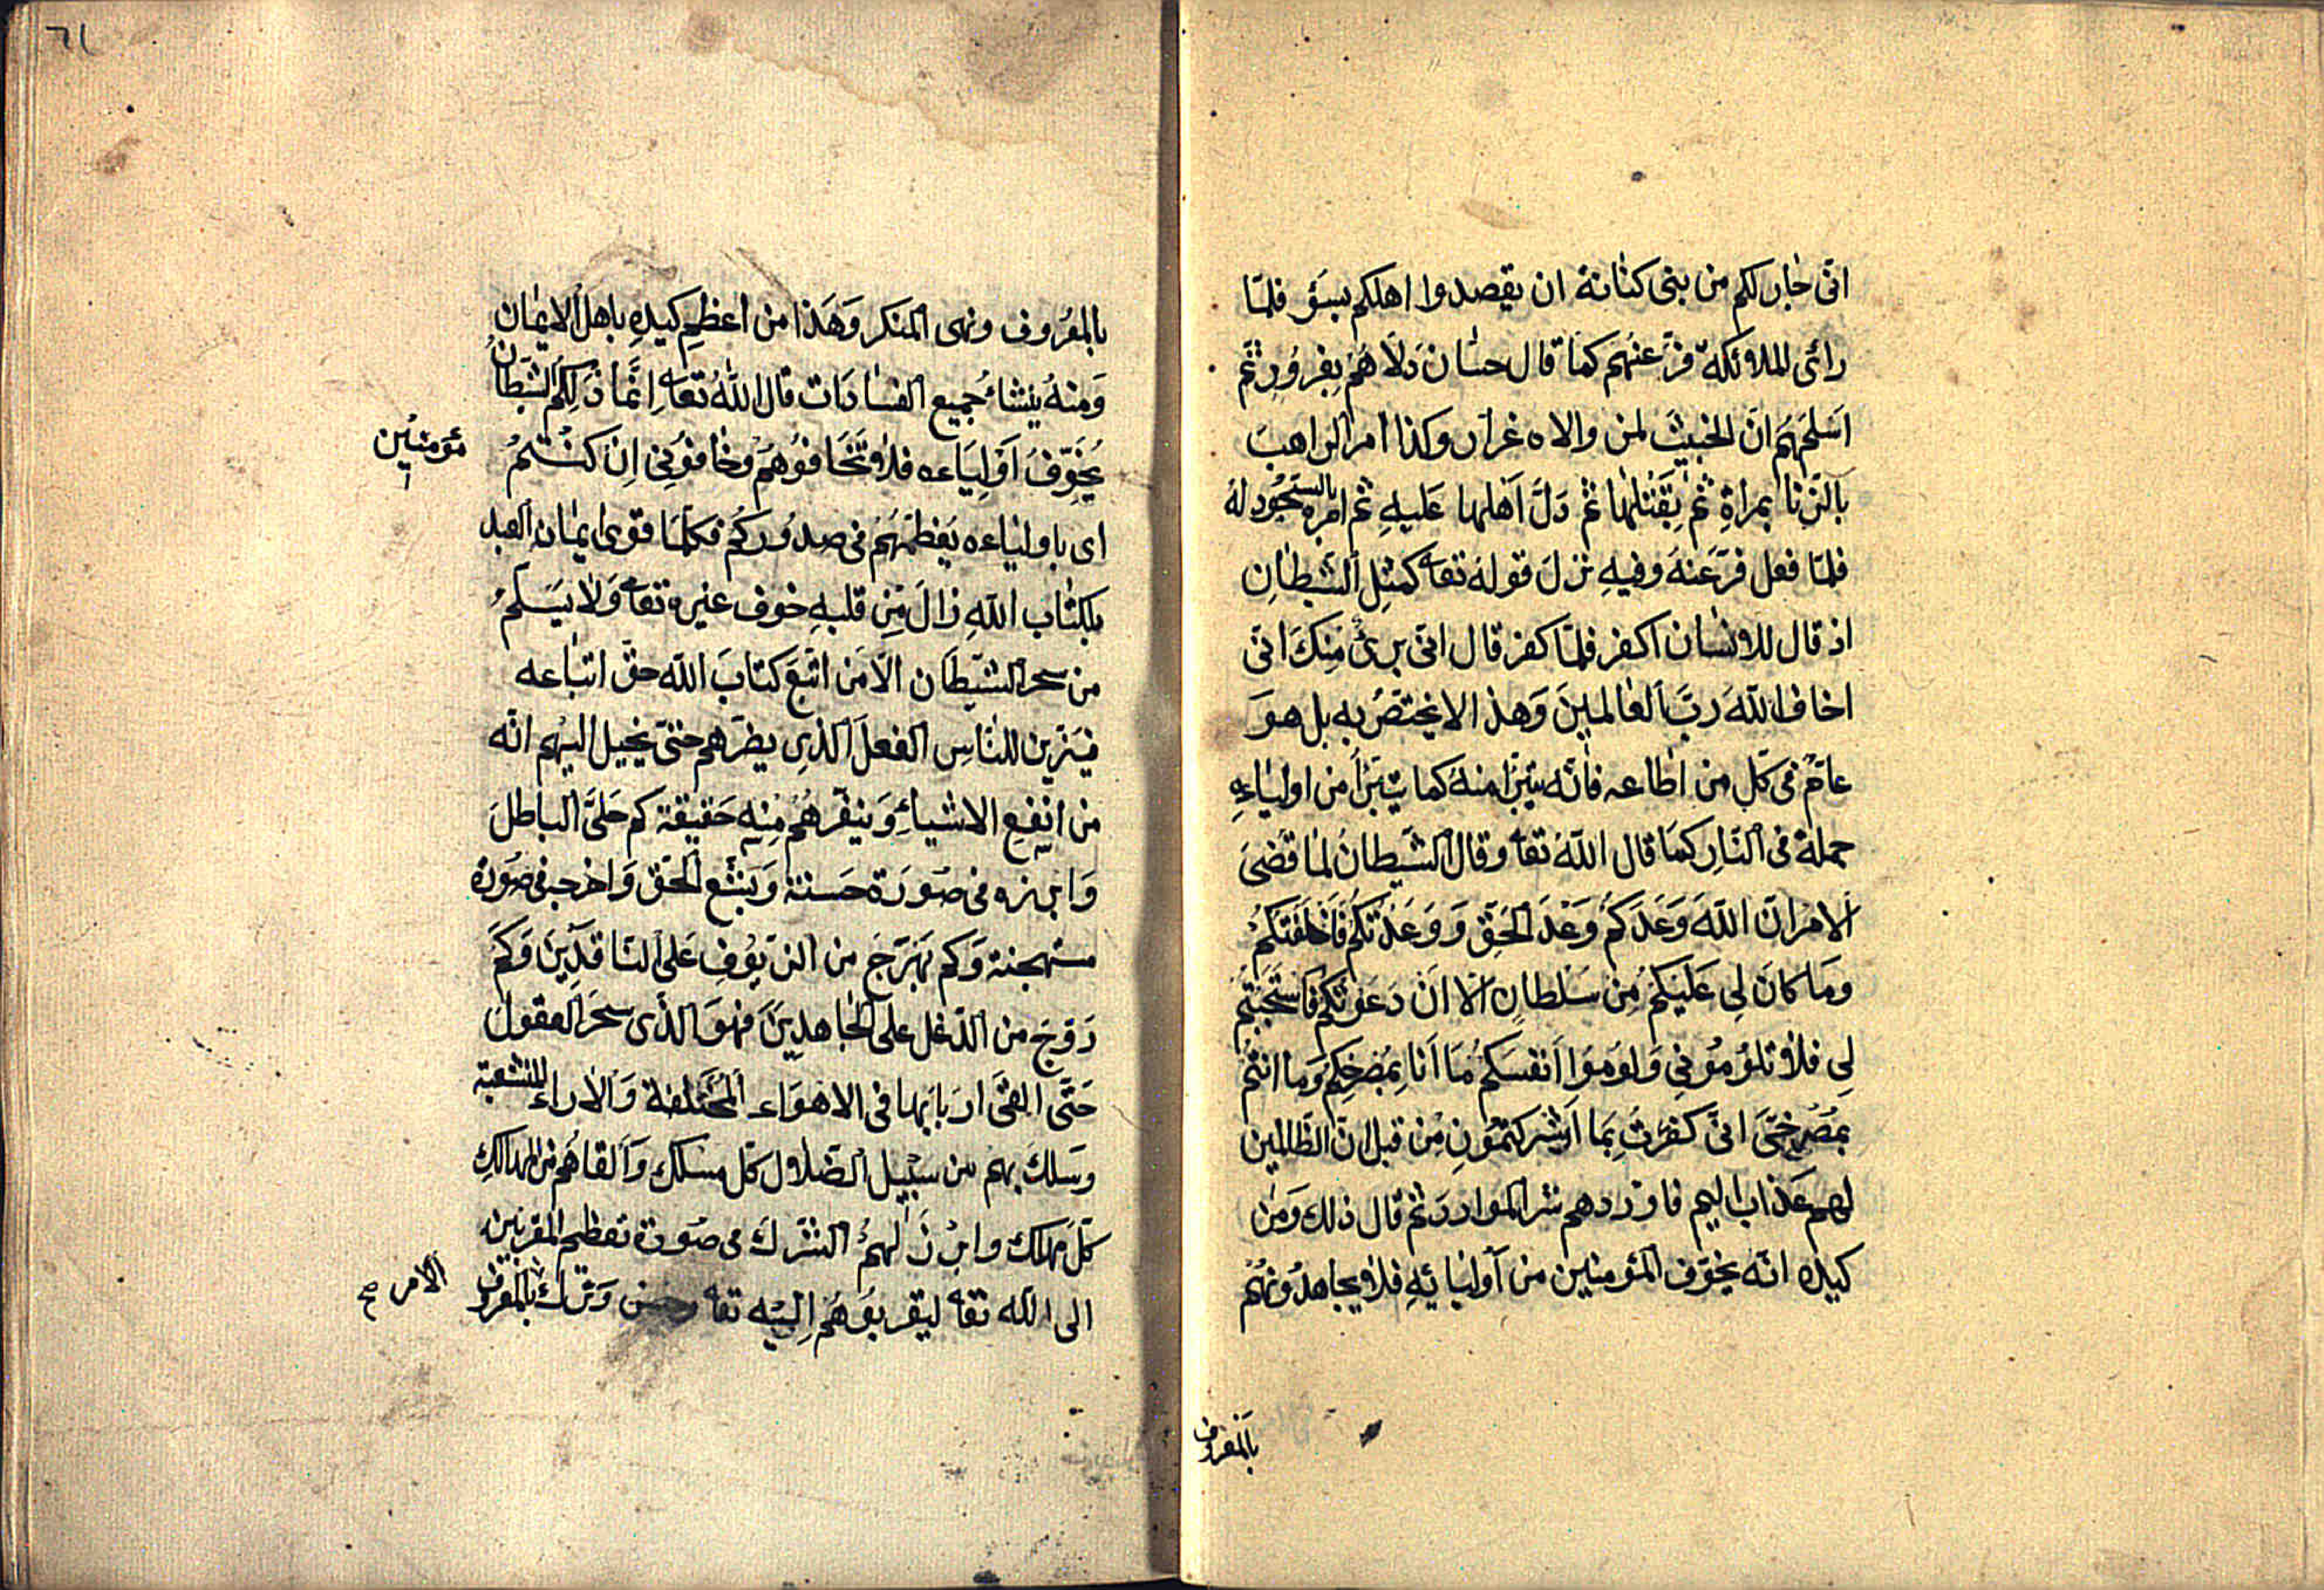 انّى جار لكم من بنى كنانة ان يقصدوا اهلكم بسؤ فلمّا
رائى الملائكة فرّ عنهم كما قال حسان دَلّاهُم بِغرُورٍ ثمّ
اَسلمَهُم انّ الخبيثَ لمن والاه غرار وكذا امر الراهبَ
بالزّنا بمراةٍ ثمّ بِقَتلها ثمّ دَلّ اَهلها عَليهِ ثم امره بالسجُود لهُ
فلمّا فعل فرّ عَنهُ وفيهِ نزلَ قوله تعا كمثلِ الشيطانِ
اذ قال للانسان اكفر فلمّا كفر قال انّى برئ مِنكَ انّى
اخاف اللّهَ ربَّ العالمينَ وَهذا لا يختصّ به بل هوَ
عامّ فى كلّ من اطاعه فانّه يتبرّأ منهُ كما يتبرّأ من اولياءِهِ
جملة فى النّارِ كما قال اللّهُ تعا وقال الشيطانُ لما قضىَ
الامرُ انّ اللّهَ وَعَدَكُم وَعْدَ الحَقّ وَوَعَدْتكُم فَاَخْلَفتكُمْ
ومَا كانَ لِى عَلَيكمُ مِن سَلطانٍ الّا اَن دَعَوتكُم فاستَجَبتُم
لِى فلا تلوُمُونِى وَلوُمُوا اَنفسَكُم مَا اَنَا بِمُصْرِخِكم وَما انتُم
بمُصْرِخىَّ انّى كفرتُ بِمَا اَشركتمُونِ مِن قبل انّ الظّالمين
لهم عَذاب اليم فاوردهم شر الموارد ثمّ قال ذلك وَمِن
كيده انّه يخوّف المؤمنين من اَوليائهِ فلا يجاهدُونهُم
بالمَعرُوف
٦١
بالمعُروف ونهى المنكر وَهَذا من اعظمِ كيدِهِ باهل الايمان
وَمنهُ ينشاءُ جميع الفسادَات قال اللّهُ تعا اِنّمَا ذَلِكُم الشيَطانُ
يُخَوّفُ اَوْلِيَاءه فلا تَخَافوُهُم وخافوُنِى اِن كنُتمُ مؤمنين
اى باوليائه يُعَظّمهُم فى صدُوركُم فكلّما قوى ايمان العبد
بكتاب اللّهِ زالَ مِن قلبهِ خوف غيره تعا وَلا يَسَلمُ
من سحر الشيّطَان الّا مَن اتّبعَ كتابَ اللّه حقّ اتباعه
فيَزين للنّاسِ الفعلَ الذِى يضرّهم حتىّ يخيل اليهم انّه
من انفعِ الاشياءِ وَينفّرهُم مِنه حَقيقة كم جَلّى الباطلَ
وَابرزه فى صُورَة حَسنة وَبشّع الحَقّ وَاخرجه فى صُورة
مستهجنة وَكم بَهَرَجَ من الزّيوُفِ عَلى النّاقدِينَ وَكم
رَوّجَ من الدّغل على الجَاهدِينَ فهُوَ الذّى سحَرَ العقول
حَتّى القىَ اربَابَها فى الاهوَاء المُختَلفة وَالاراء المنشعبة
وسَلكَ بهم من سبَيل الضّلال كلّ مسلك وَالقاهُم من المهالكِ
كلّ مهلك وابرْزَ لهمُ الشرّكَ فى صُورة تعظيم المقربين
الى اللّه تعا ليقربوُهُم اِليْه تعا وحسن وَترك بالمعروُف الامر صح